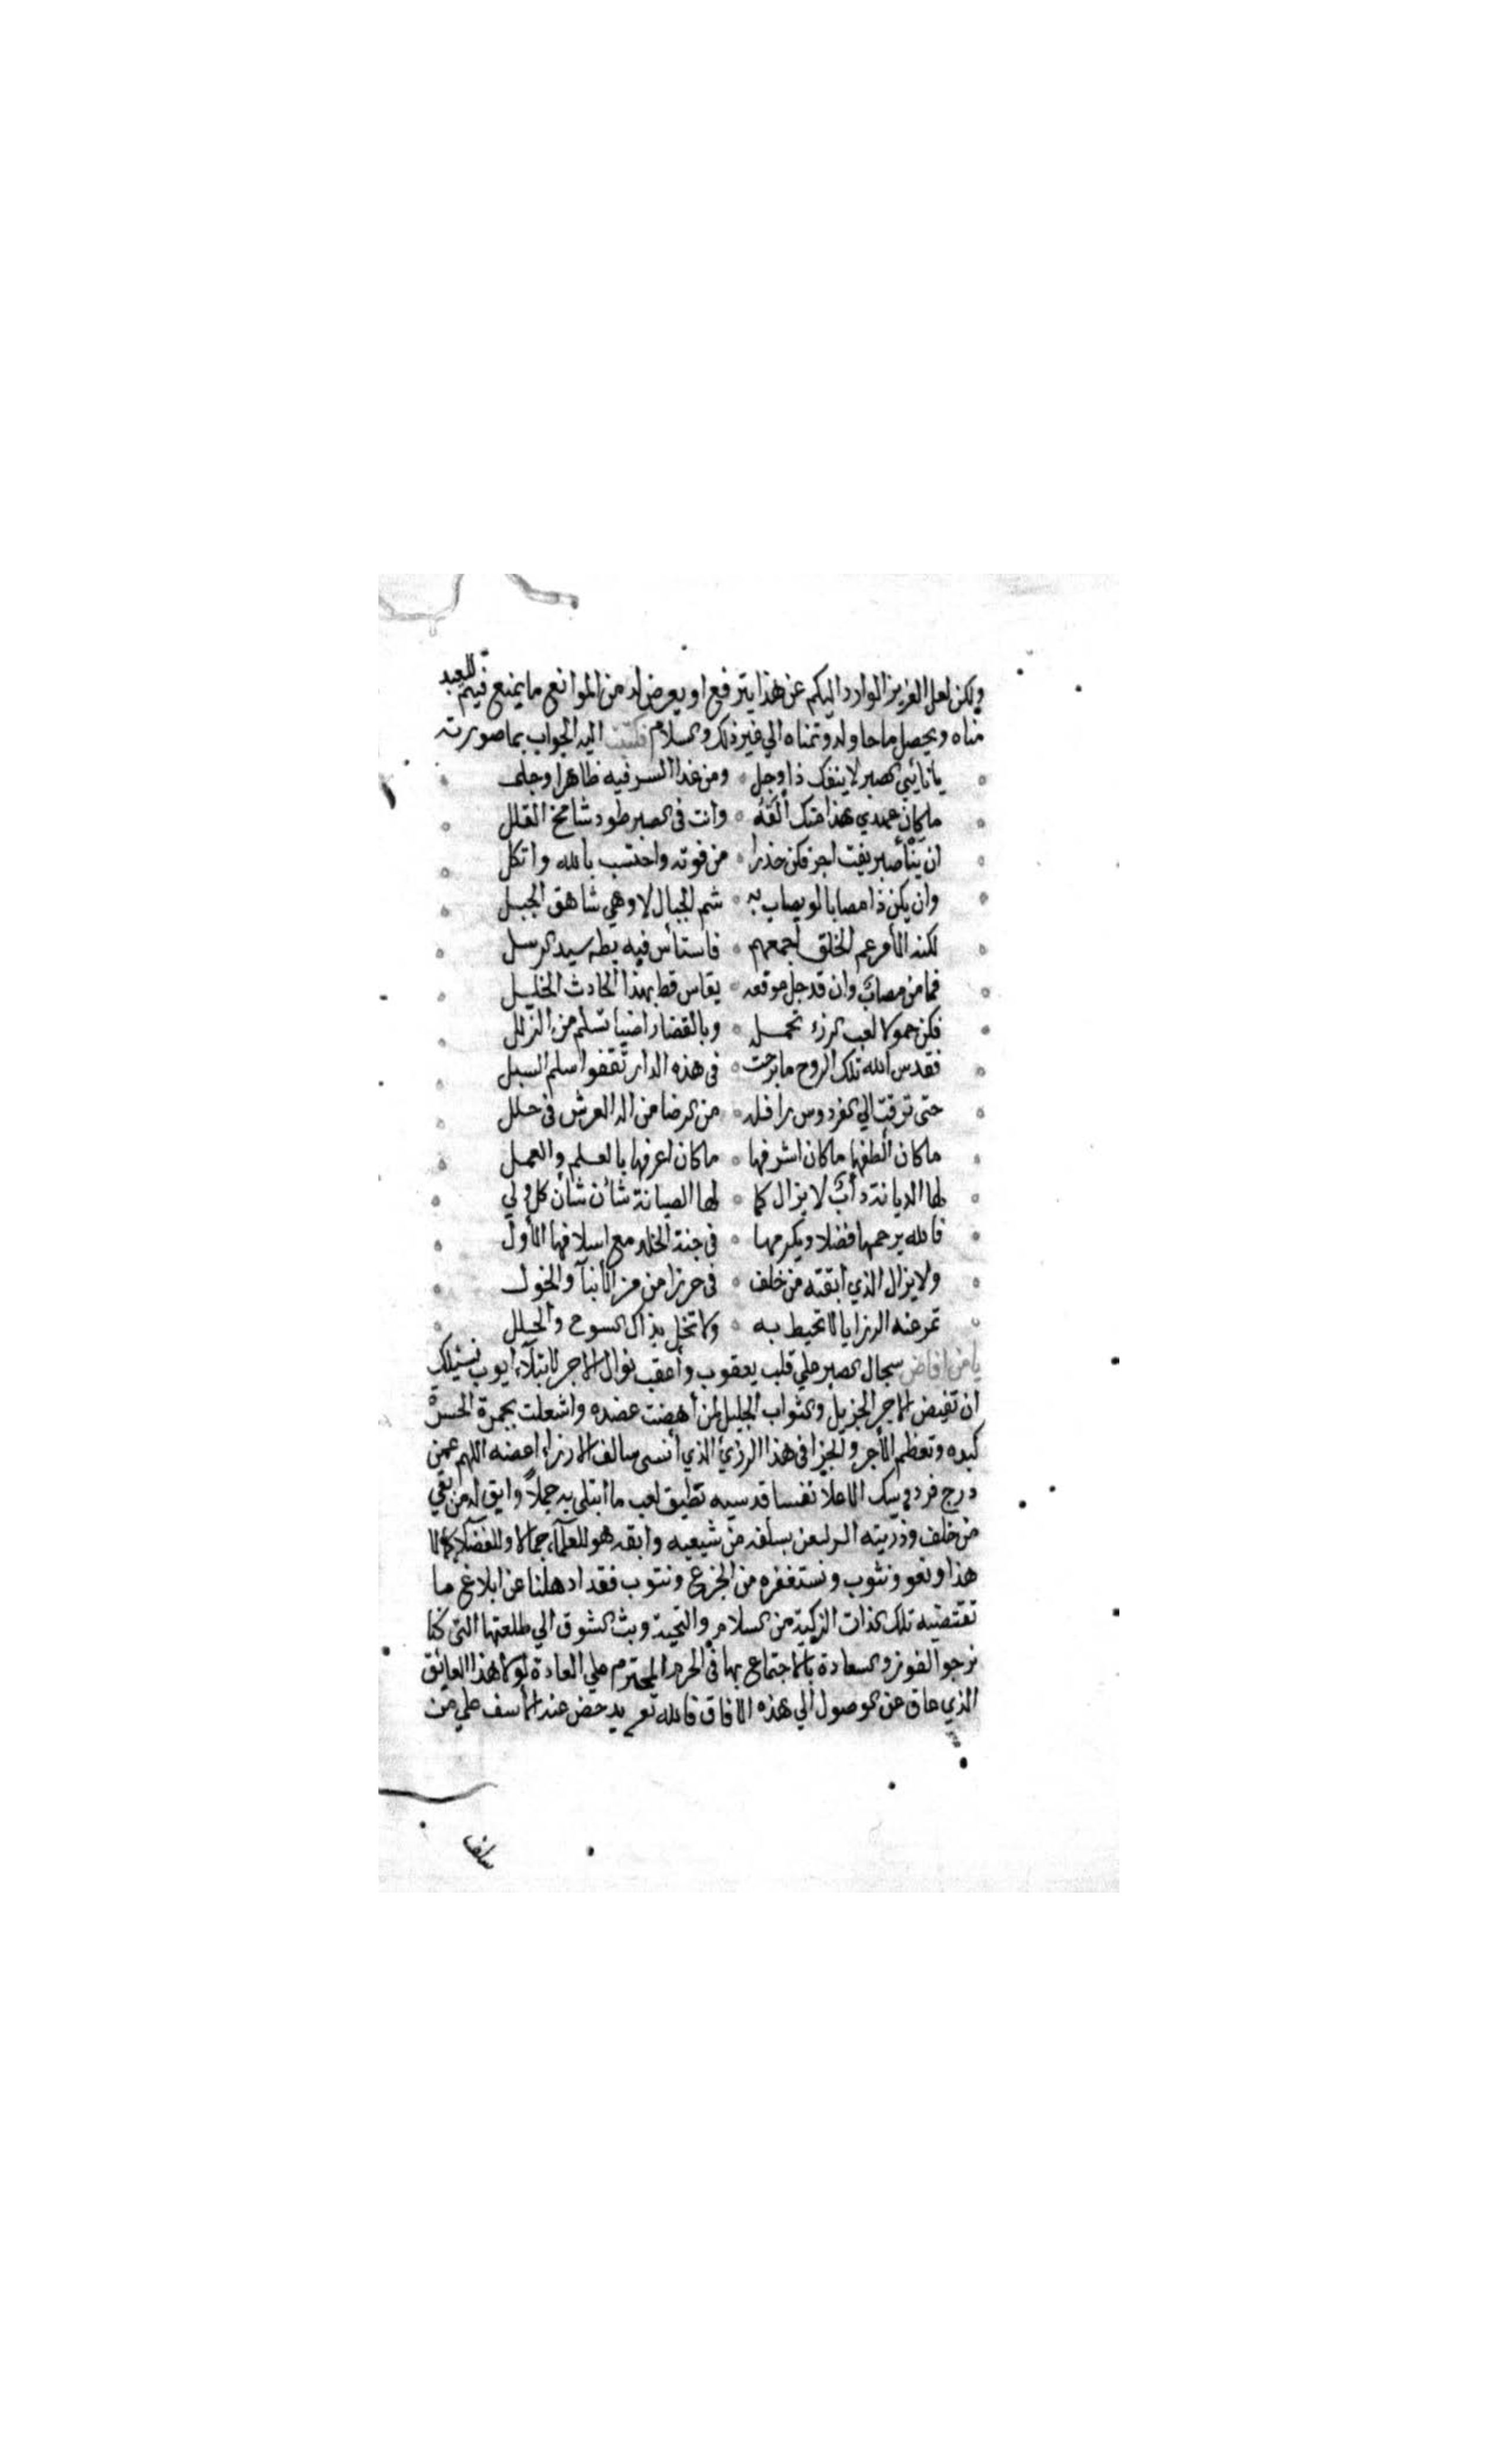 ولكن لعل العزيز الوارد اليكم عن هذا يترفع او يعرض له من الموانع ما يمنع فيتم للعبد
مناه ويحصل ما حاوله وتمناه الي غير ذلك والسلام فكتبت اليه الجواب بما صورته
يا نائبي الصبر لا ينفك ذا وجل ٥ ومن غدا السر فيه ظاهرا وجلى
ما كان عهدي بهذا منك ألفه ٥ وانت في الصبر طود شامخ القلل
ان ينأ صبر يفت اجر فكن حذرا ٥ من فوته واحتسب بالله واتكل
وان يكن ذا مصابا لو يصاب به ٥ شم الجبال لاوهي شاهق الجبل
لكنه الأمر عم الخلق اجمعهم ٥ فاستأس فيه بطه سيد الرسل
فما من مصاب وان قد جل موقعه ٥ يقاس قط بهذا الحادث الجليل
فكن حمولا لعب الرزء تحمله ٥ وبالقضا راضيا تسلم من الزلل
فقدس الله تلك الروح ما برحت ٥ في هذه الدار تقفوا سلم السبل
حتى ترقت الي الفردوس رافله ٥ من الرضا من اله العرش في حلل
ما كان ألطفها ما كان اشرفها ٥ ما كان اعرفها بالعلم والعمل
لها الديانة دأب لا يزال كما ٥ لها الصيانة شأن شأن كل ولي
فالله يرحمها فضلا ويكرمها ٥ في جنة الخلد مع اسلافها الأول
ولا يزال الذي أبقته من خلف ٥ في حرز امن من الأبنآ والخول
تمر عنه الرزايا لا تحيط به ٥ ولا تخل بذاك السوح والحلل
يا من افاض سجال الصبر علي قلب يعقوب وأعقب نوال الاجر لابتلآء ايوب نسئلك
ان تفيض الاجر الجزيل والثواب الجليل لمن أهضت عضده واشعلت بجمرة الحسرة
كبده وتعظم الأجر والجزا في هذا الرزئ الذي أنسى سالف الارزاء اعضه اللهم عمن
درج فردوسك الاعلا نفسا قدسيه تطيق لعب ما أبتلى به حملاً وابق له من بقي
من خلف وذريته بسلفه من شيعيه وابقه هو للعلمآء جمالا وللفضلآء كمالا
هذا ونثوب ونستغفره من الجزع ونتوب فقد ادهلنا عن ابلاغ ما
تقتضيه تلك الذات الزكية من السلام والتحية وبث الشوق الي طلعتها التي كنا
نرجو الفوز والسعادة بالاجتماع بها في الحرم المحترم علي العادة لولا هذا العائق
الذي عاق عن الوصول الي هذه الافاق فالله تعـ يدحض عنه الأسف علي من
سلف